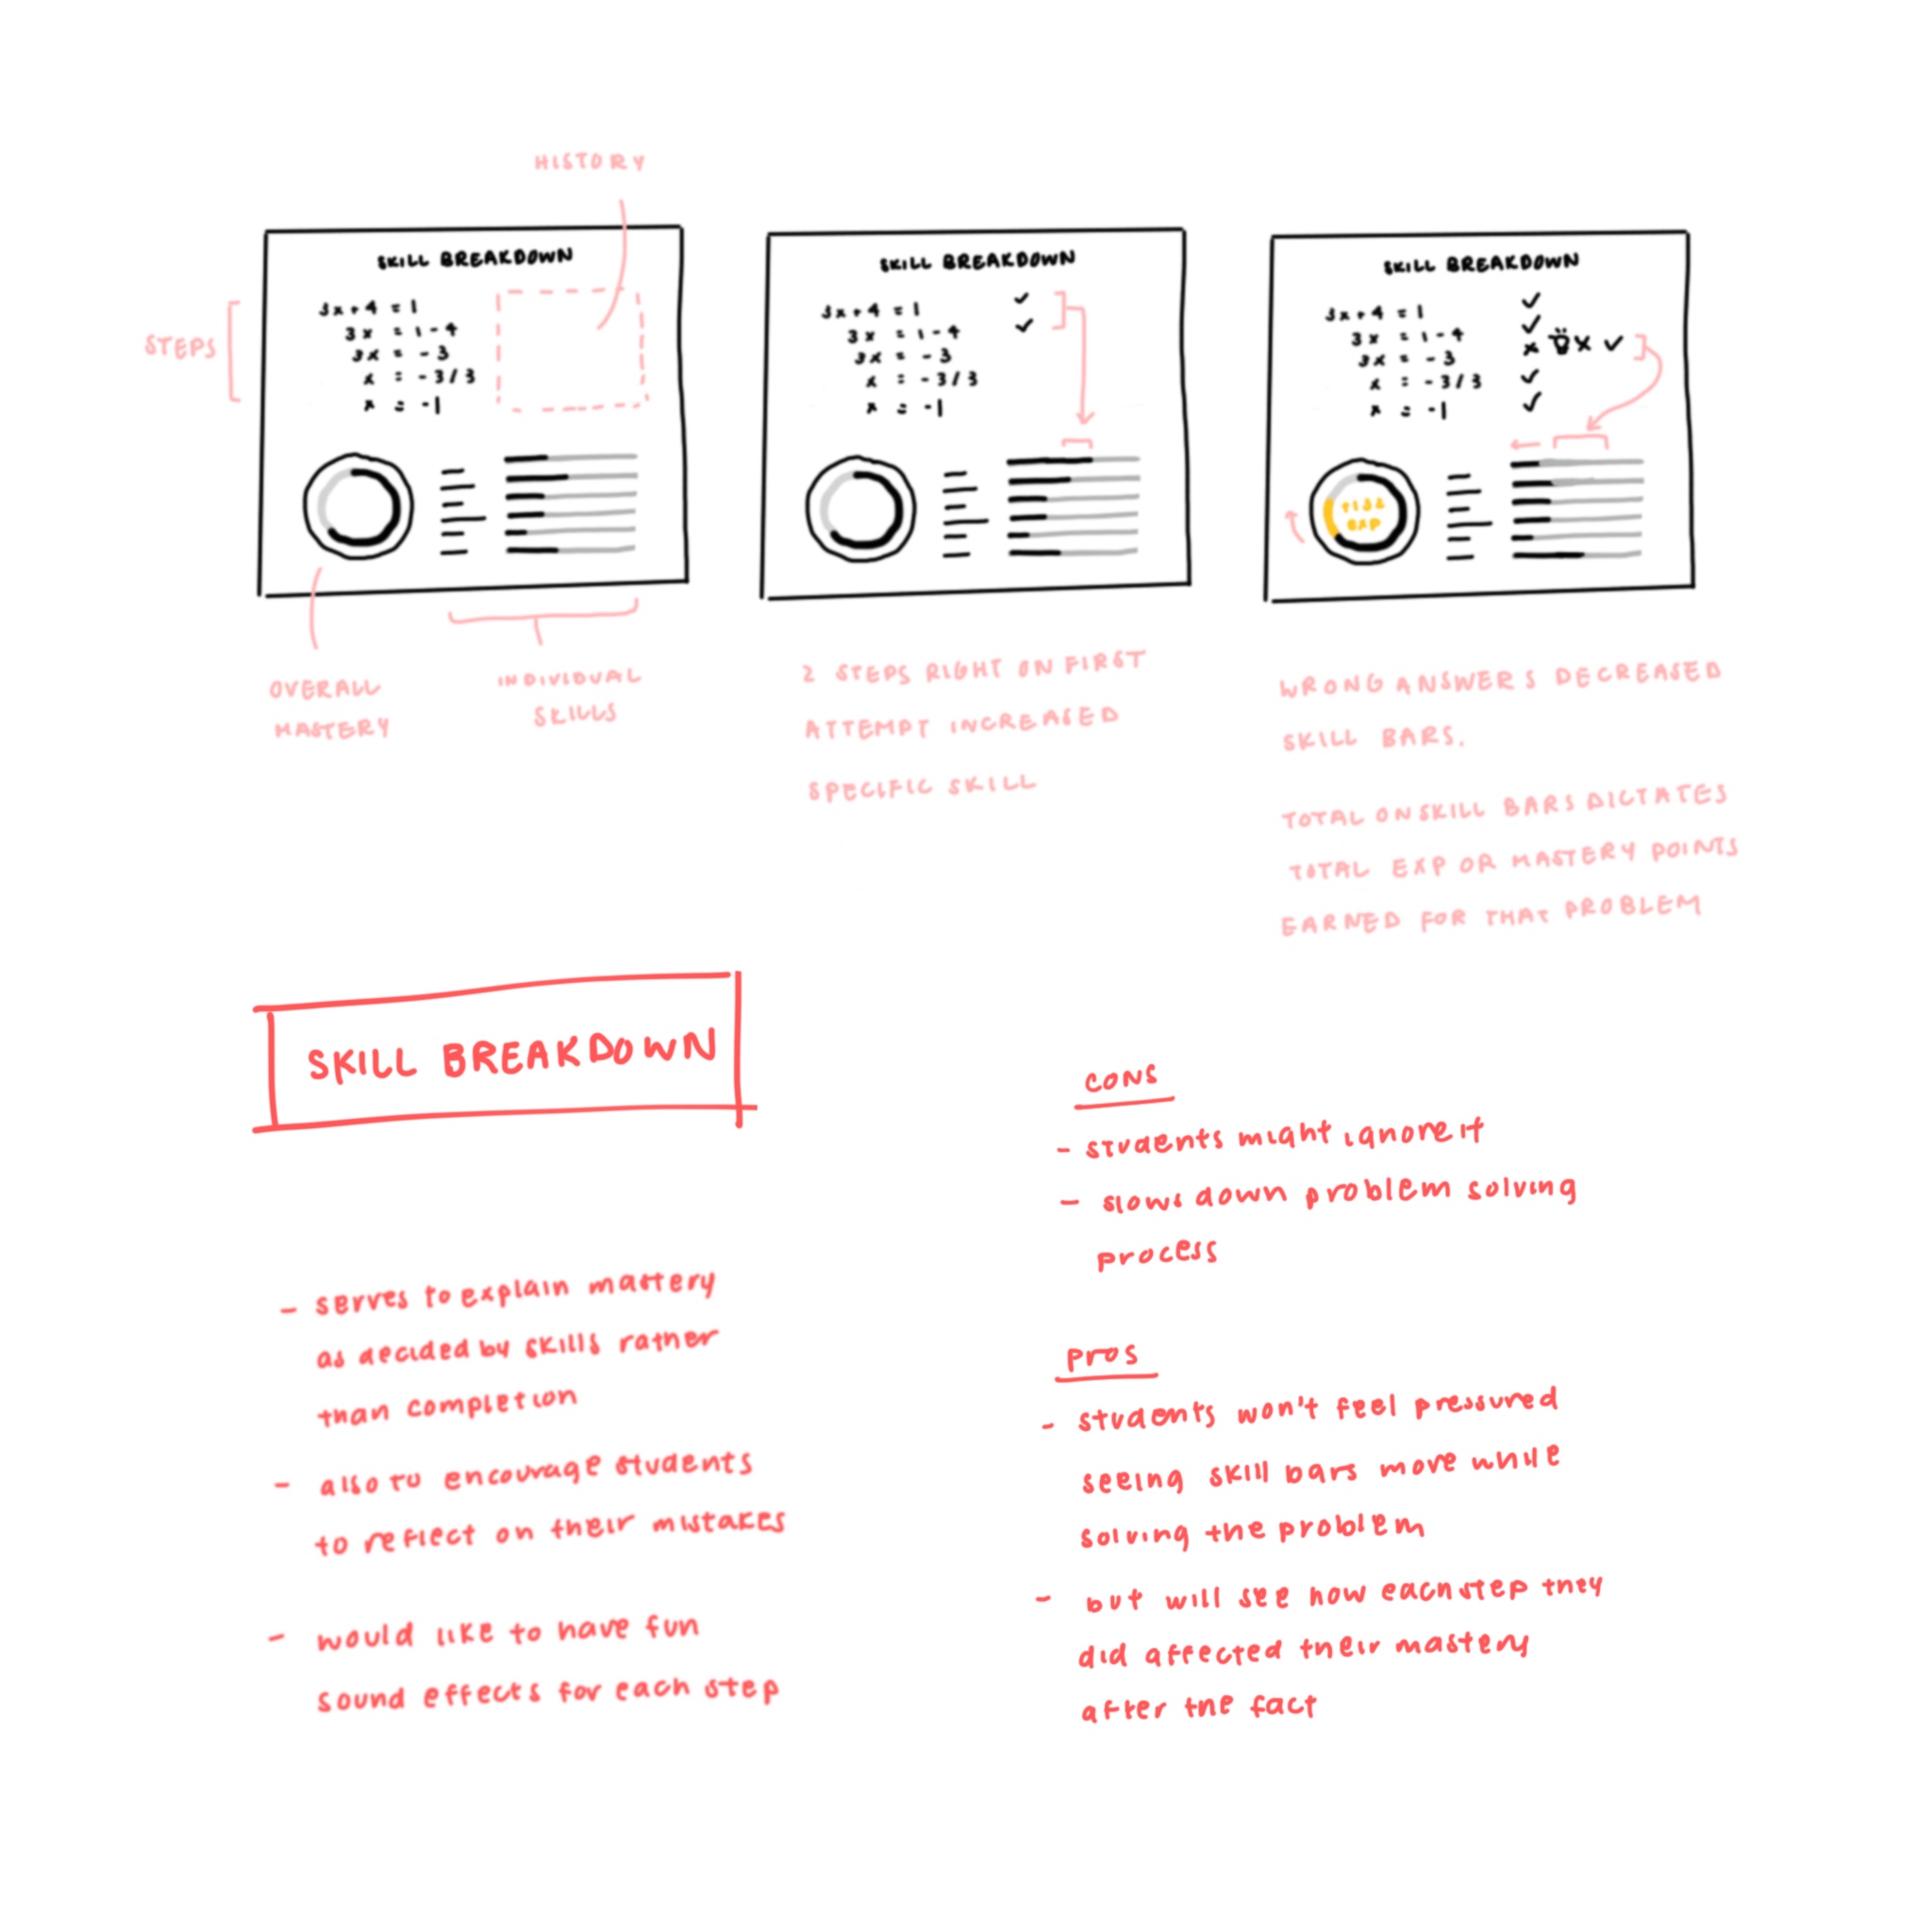 HISTORY
STEPS
SKILL BREAKDOWN
3x + 4 = 1
3x = 1 - 4
3x = - 3
x = - 3 / 3
x = - 1
OVERALL
MASTERY
INDIVIDUAL
SKILLS
SKILL BREAKDOWN
3x + 4 = 1
3x = 1 - 4
3x = - 3
x = - 3 / 3
x = - 1
2 STEPS RIGHT ON FIRST
ATTEMPT INCREASED
SPECIFIC SKILL
SKILL BREAKDOWN
3x + 4 = 1
3x = 1 - 4
3x = - 3
x = - 3 / 3
x = - 1
EXP
WRONG ANSWERS DECREASED
SKILL BARS.
TOTAL ON SKILL BARS DICTATES
TOTAL EXP OR MASTERY POINTS
EARNED FOR THAT PROBLEM
SKILL BREAKDOWN
- serves to explain mastery
as decided by skills rather
than completion
- also to encourage students
to reflect on their mistakes
- would like to have fun
sound effects for each step
cons
- students might ignore it
- slows down problem solving
process
pros
- students won't feel pressured
seeing skill bars move while
solving the problem
- but will see how each step they
did affected their mastery
after the fact